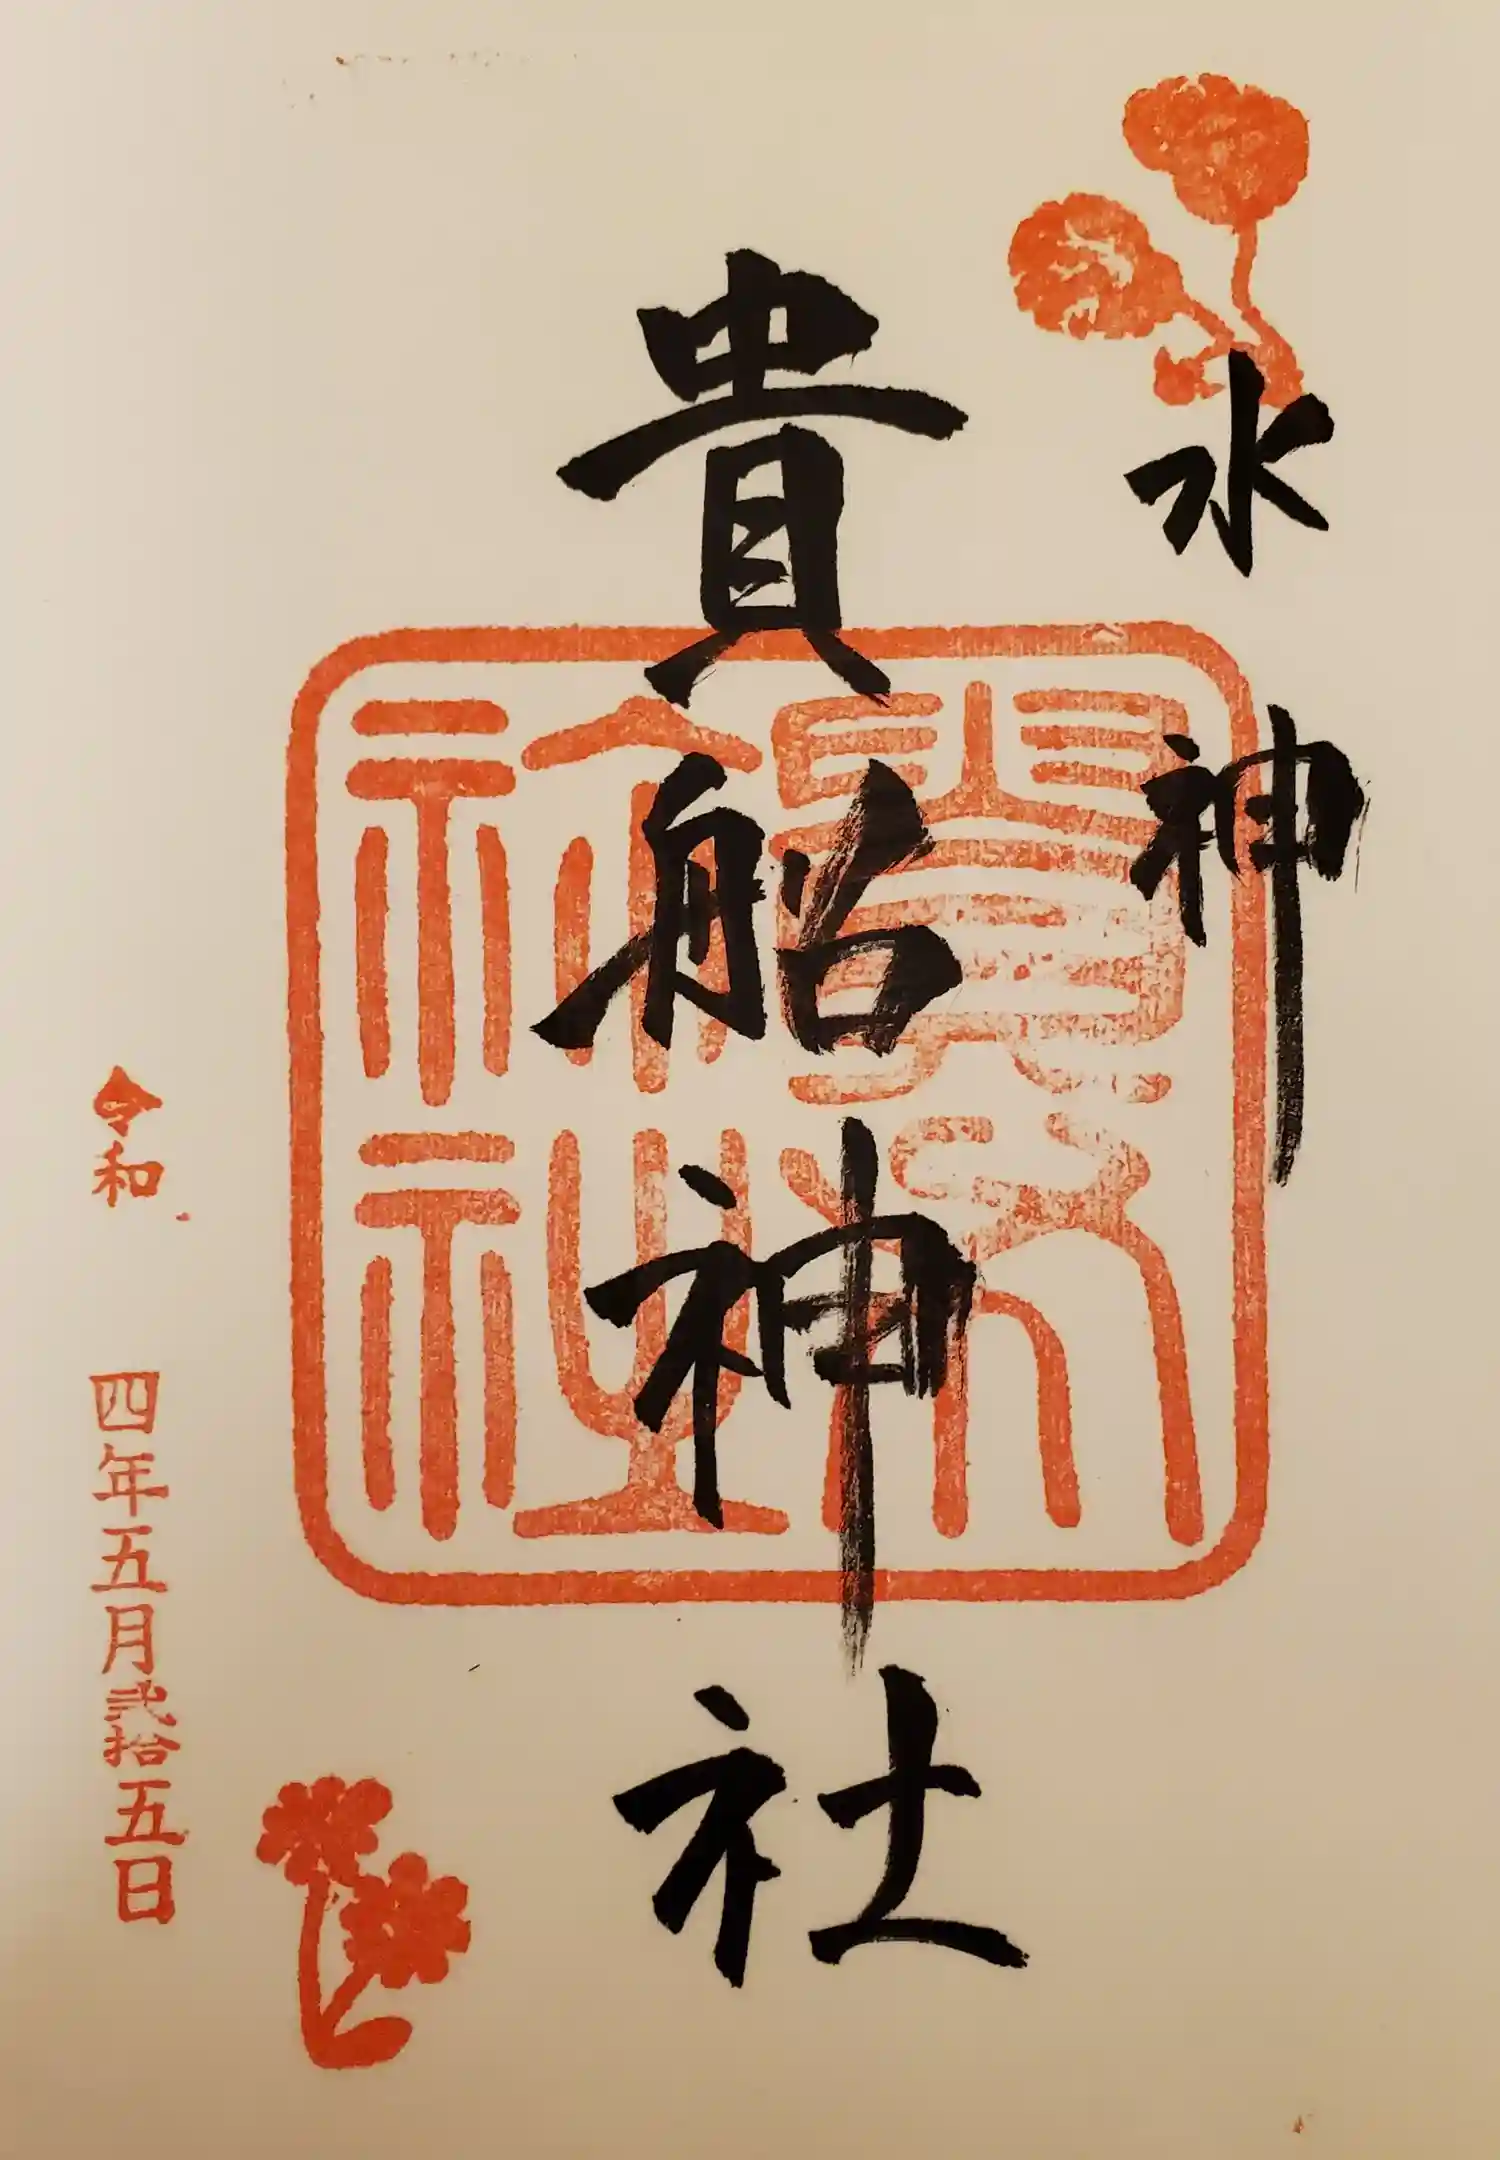 水神
貴船神社
貴船神社
令和四年五月弐拾五日